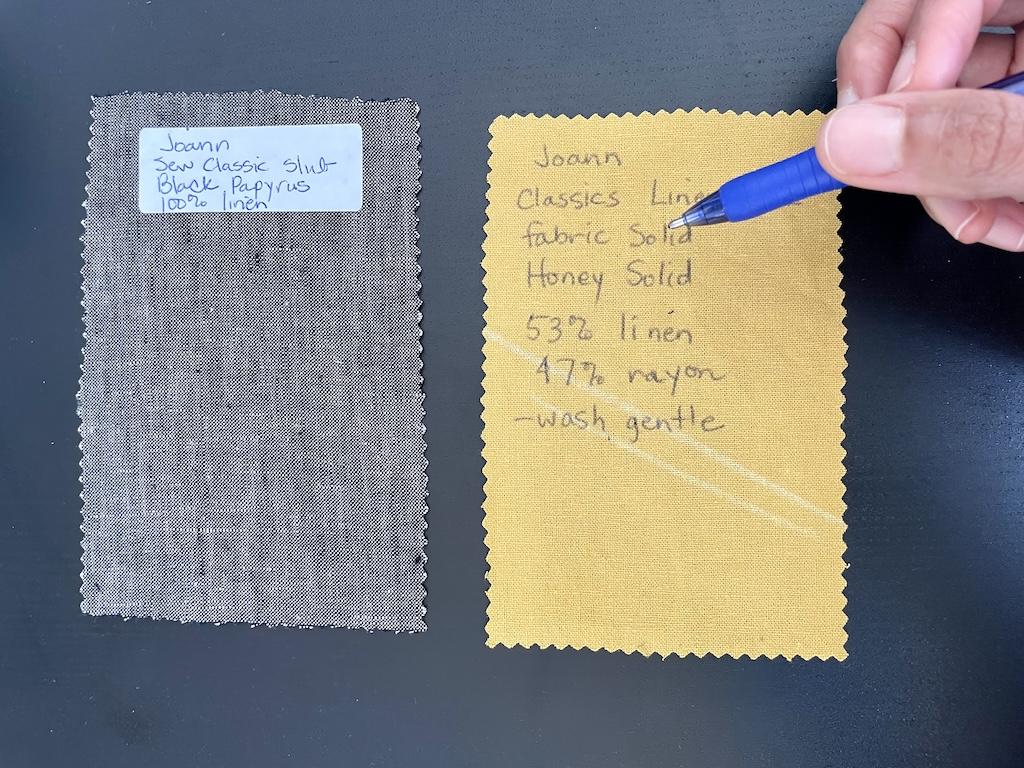 Joann
Sew Classic Slub
Black Papyrus
100% linen
Joann
Classics Line
fabric Solid
Honey Solid
53% linen
47% rayon
-wash gentle